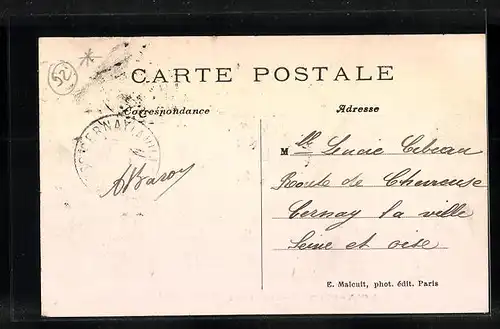 52
CARTE POSTALE
Correspondance
Adresse
CERNAY LA VILLE
M lle Lucie
ABaron
Route de Chevreuse
Cernay la ville
Seine et oise
E. Malcuit, phot. édit. Paris